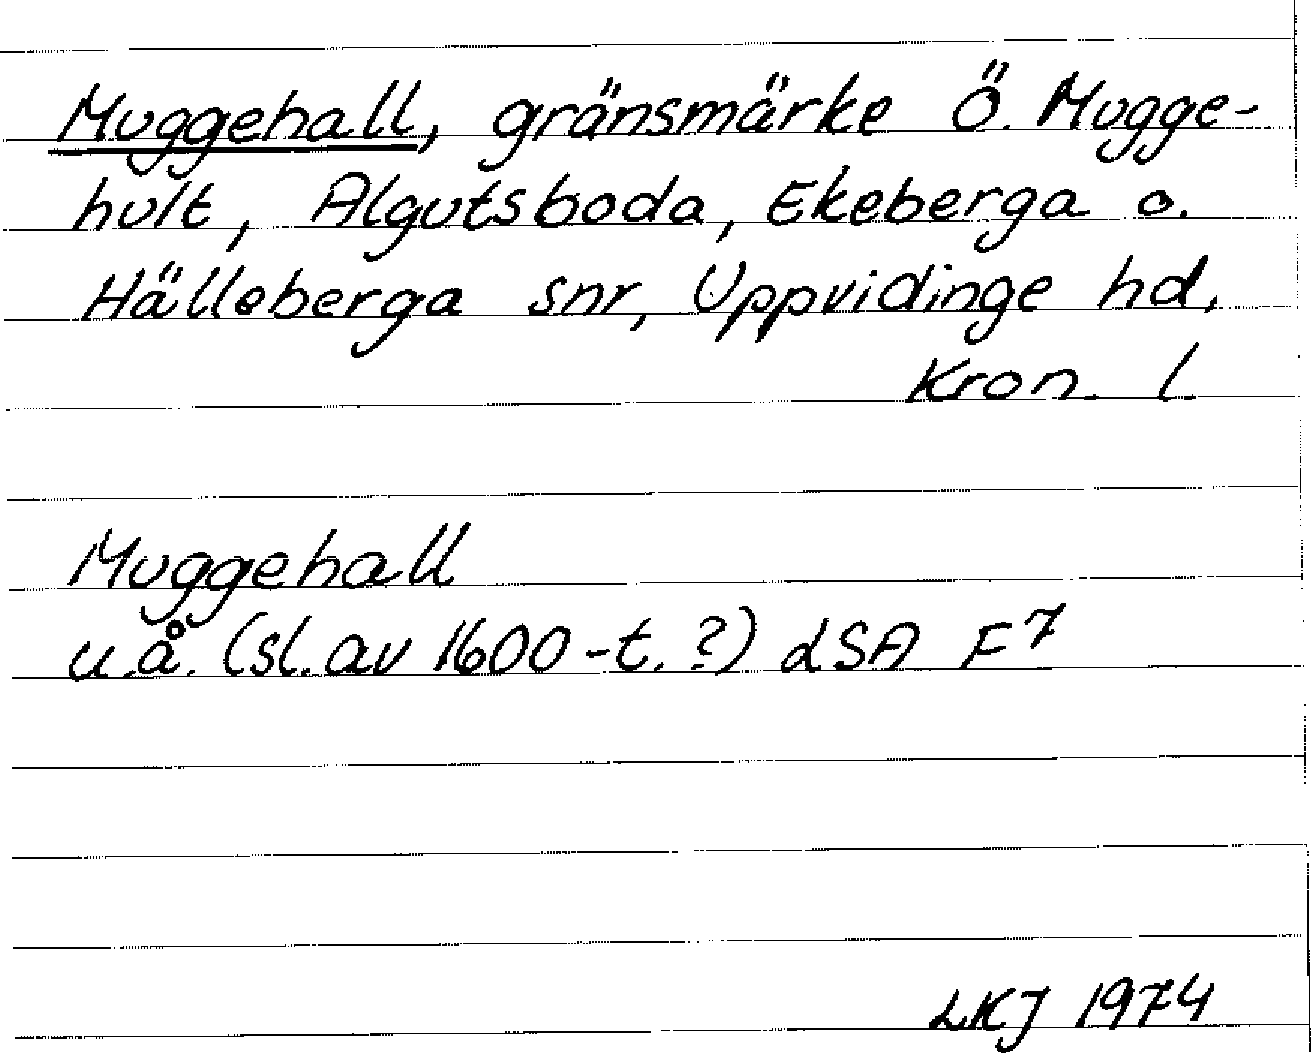 Muggehall, gränsmärke Ö. Mugge-
hult, Algutsboda, Ekeberga o.
Hälleberga snr, Uppvidinge hd,
Kron. l.
Muggehall
u.å. (sl. av 1600-t. ?) LSA F7
LKJ 1974